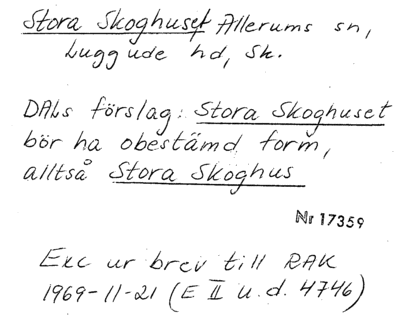 Stora Skoghuset Allerums sn,
Luggude hd, Sk.
DALs förslag: Stora Skoghuset
bör ha obestämd form,
alltså Stora Skoghus
Nr 17359
Exc ur brev till RAK
1969-11-21 (E II u.d. 4746)